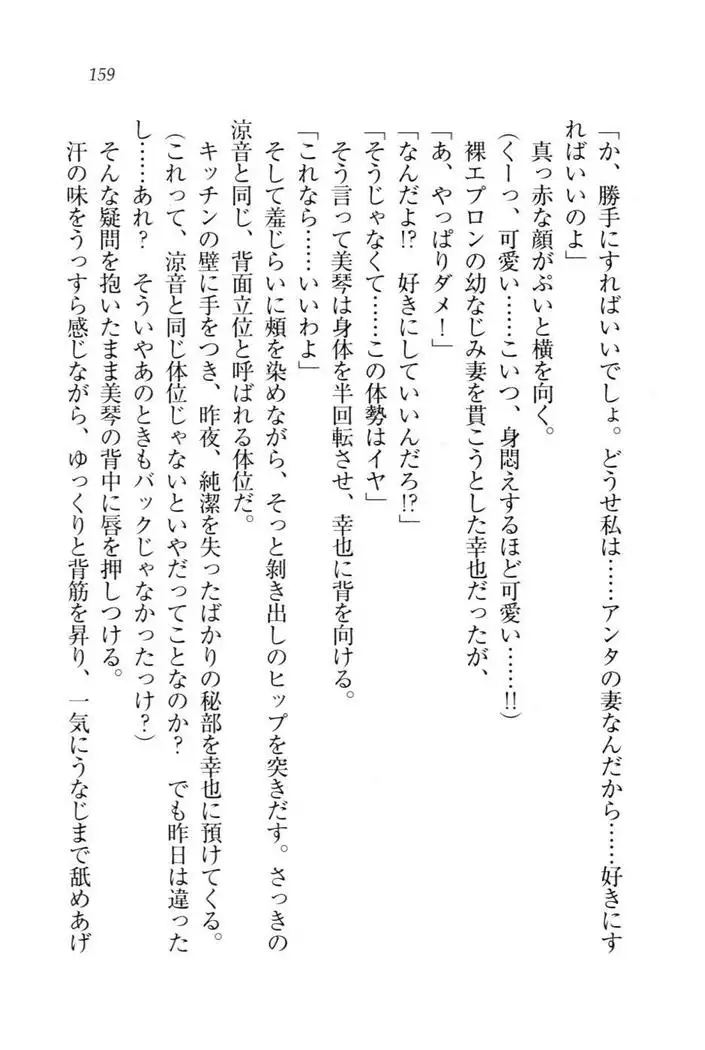 159
「か、勝手にすればいいでしょ。どうせ私は……アンタの妻なんだから……好きにす
ればいいのよ」
真っ赤な顔がぷいと横を向く。
（くーっ、可愛い……こいつ、身悶えするほど可愛い……!!）
裸エプロンの幼なじみ妻を貫こうとした幸也だったが、
「あ、やっぱりダメ！」
「なんだよ!?　好きにしていいんだろ!?」
「そうじゃなくて……この体勢はイヤ」
そう言って美琴は身体を半回転させ、幸也に背を向ける。
「これなら……いいわよ」
そして羞じらいに頬を染めながら、そっと剝き出しのヒップを突きだす。さっきの
涼音と同じ、背面立位と呼ばれる体位だ。
キッチンの壁に手をつき、昨夜、純潔を失ったばかりの秘部を幸也に預けてくる。
（これって、涼音と同じ体位じゃないといやだってことなのか？　でも昨日は違った
し……あれ？　そういやあのときもバックじゃなかったっけ？）
そんな疑問を抱いたまま美琴の背中に唇を押しつける。
汗の味をうっすら感じながら、ゆっくりと背筋を昇り、一気にうなじまで舐めあげ